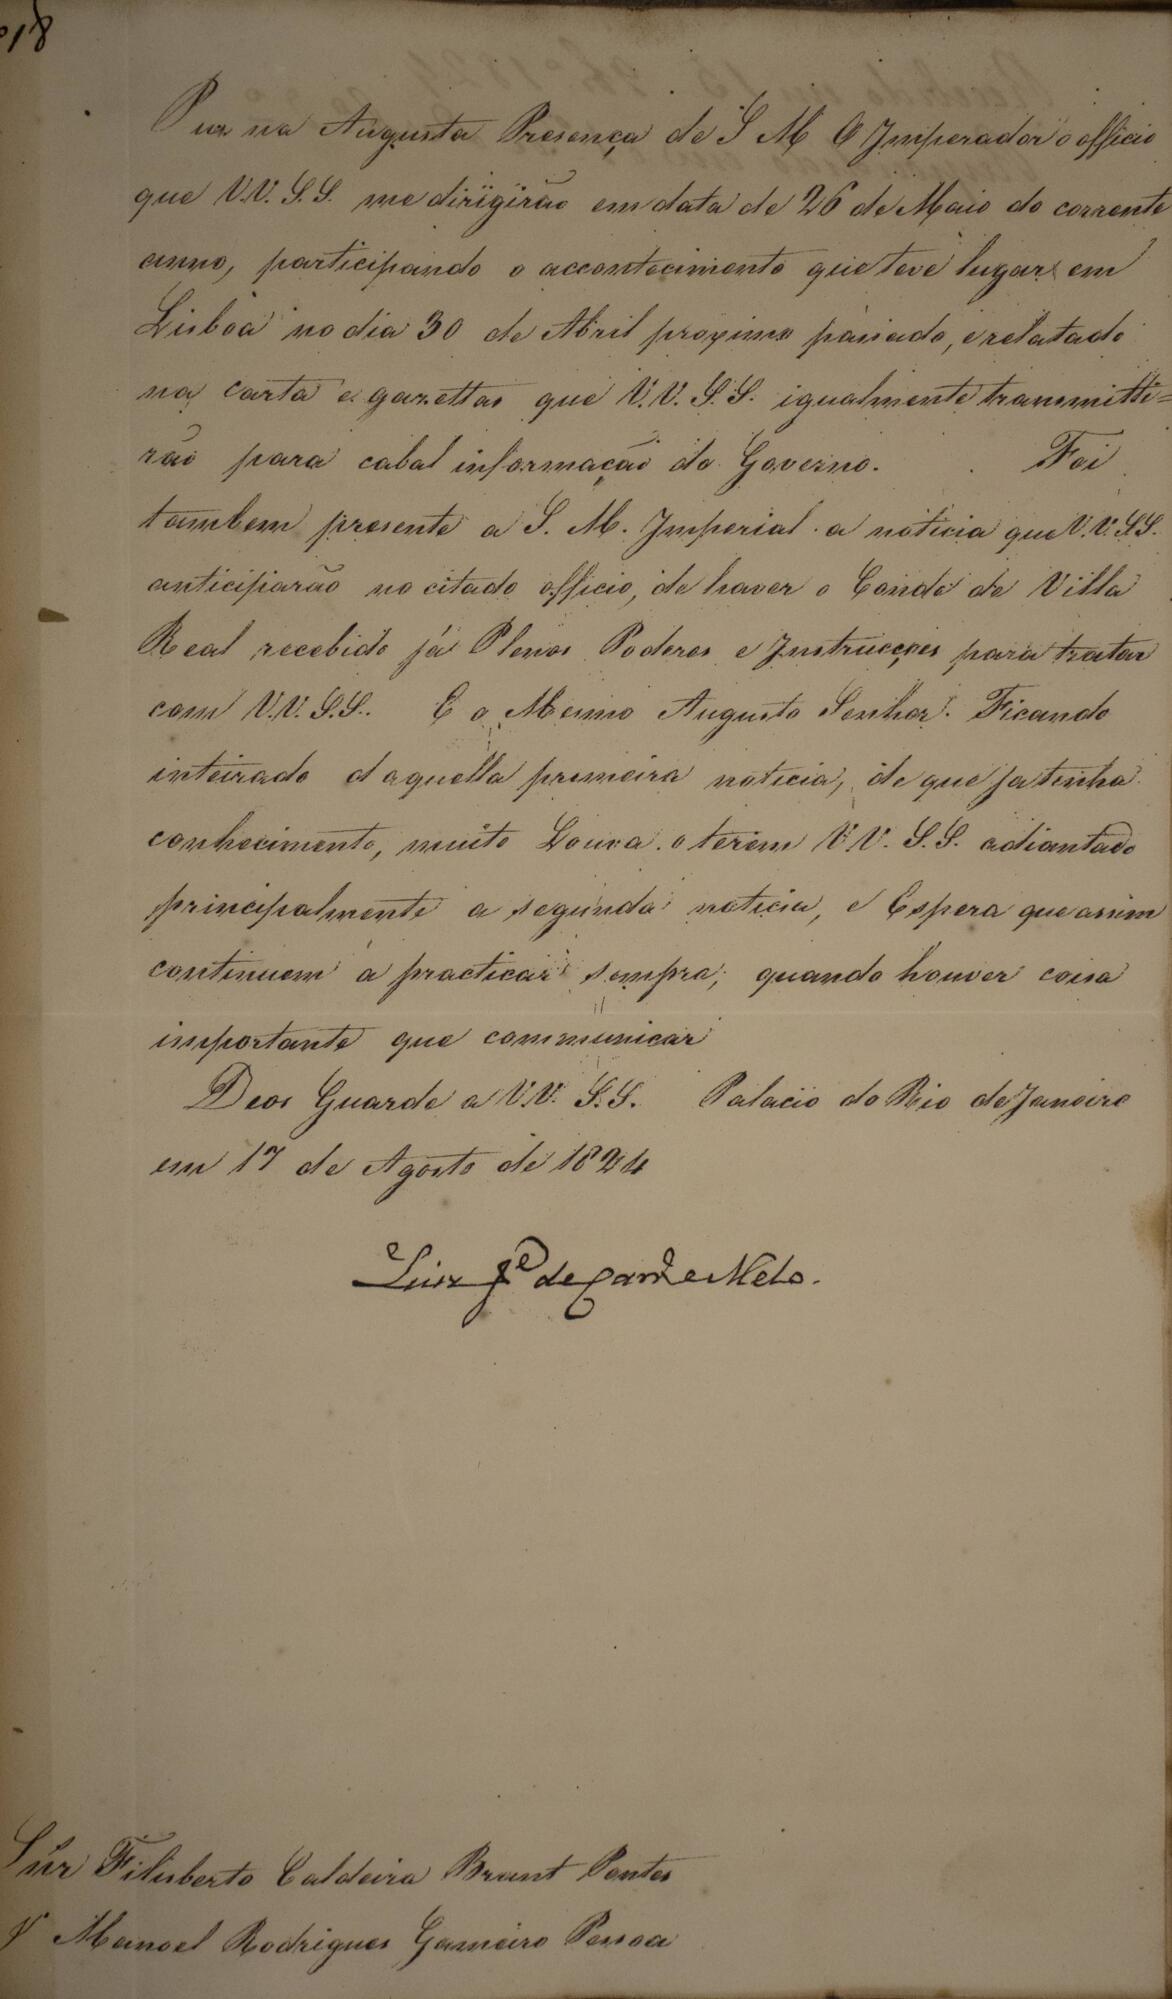 Puz na Augusta Presença de S M O Imperador o officio
que V.V. S.S. me dirigirão em data de 26 de Maio do corrente
anno, participando o accontecimento que teve lugar em
Lisboa no dia 30 de Abril proximo passado, e relatado
na carta e gazettas que V.V. S.S. igualmente transmitti=
rão para cabal informação do Governo. Foi
tambem presente a S. M. Imperial a noticia que V.V. S.S.
anticiparão no citado officio, de haver o Conde de Villa
Real recebido já Plenos Poderes e Instrucções para tratar
com V.V. S.S. E o Mesmo Augusto Senhor Ficando
inteirado daquella primeira noticia, de que ja tinha
conhecimento, muito Louva o terem V.V. S.S. adiantado
principalmente a segunda noticia, e Espera que assim
continuem a practicar sempre, quando houver coisa
importante que communicar
Deos Guarde a V.V. S.S. Palacio do Rio de Janeiro
em 17 de Agosto de 1824
Luiz Je de Carvo e Mello.
Snr Filisberto Caldeira Brant Pontes
Manoel Rodrigues Gameiro Pessoa